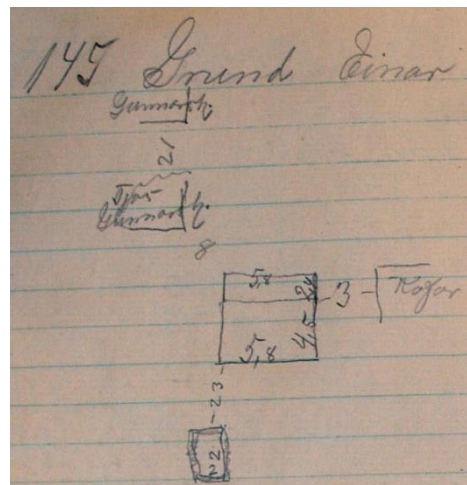 145 Grund Einar
Gunnarsh.
21
Fjós
Gunnarsh.
8
5,8 2,4
3 Kofar
4,5
5,8
23
2
2